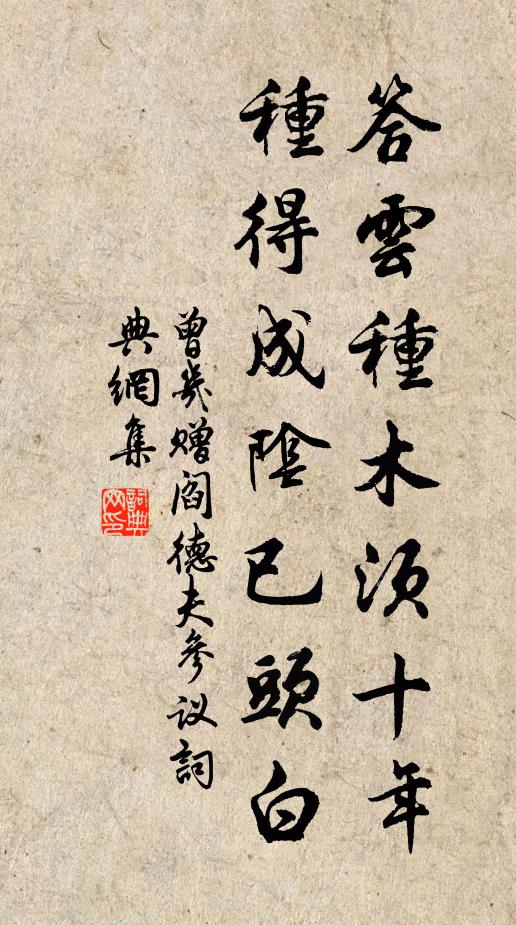 答雲種木須十年
種得成陰已頭白
曾幾贈阎德夫參议詞
典網集
詞典
网印